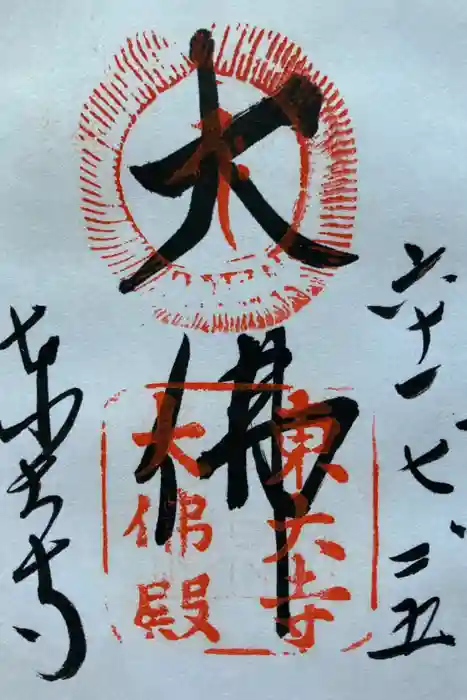 六十一、七、二五
大佛
東大寺
東大寺
大佛殿